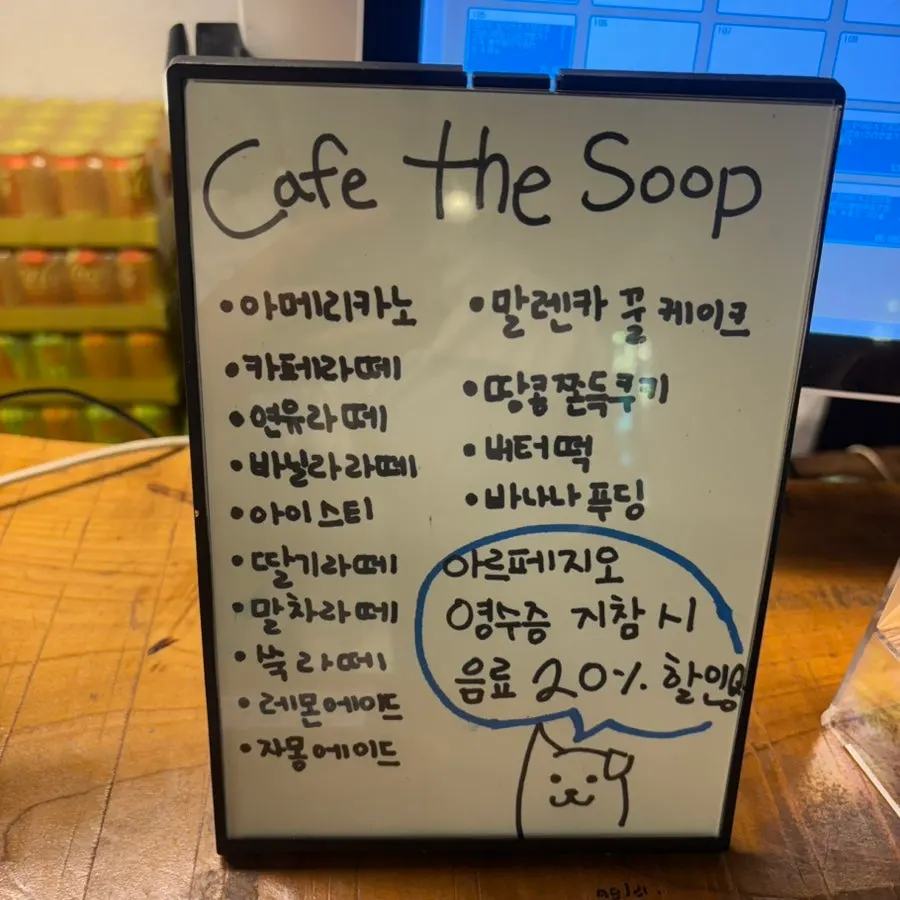 Cafe the Soop
• 아메리카노
• 카페라떼
• 연유라떼
• 바닐라라떼
• 아이스티
• 딸기라떼
• 말차라떼
• 쑥라떼
• 레몬에이드
• 자몽에이드
• 말렌카 꿀케이크
• 땅콩쫀득쿠키
• 버터떡
• 바나나푸딩
아르페지오
영수증 지참 시
음료 20% 할인
105
106
107
108